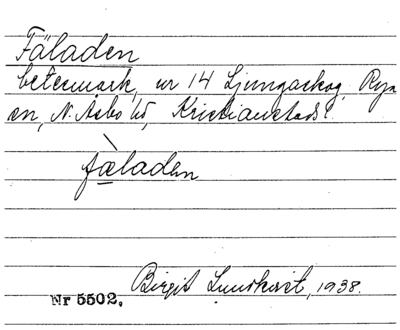 Fäladen
betesmark, ur 14 Ljungaskog, Rya
sn, N. Åsbo hd, Kristianstads l.
fàladen
Birgit Lundkvist, 1938.
Nr 5502.